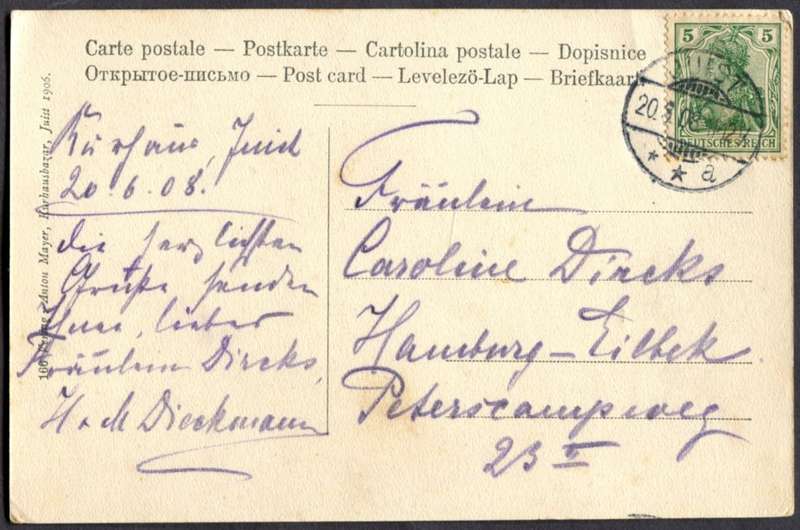 Carte postale — Postkarte — Cartolina postale — Dopisnice
Открытое-письмо — Post card — Levelező-Lap — Briefkaart
5 5
DEUTSCHES REICH
20.6.08
* * a
Kurhaus, Juist
20.6.08.
Die herzlichsten
Grüße senden
Ihnen, liebes
Fräulein Dircks,
H + M Dieckmann
Fräulein
Caroline Dircks
Hamburg–Eilbek
Peterscampweg
23 II
Verlag Anton Mayer, Kurhausbazar, Juist 1906.